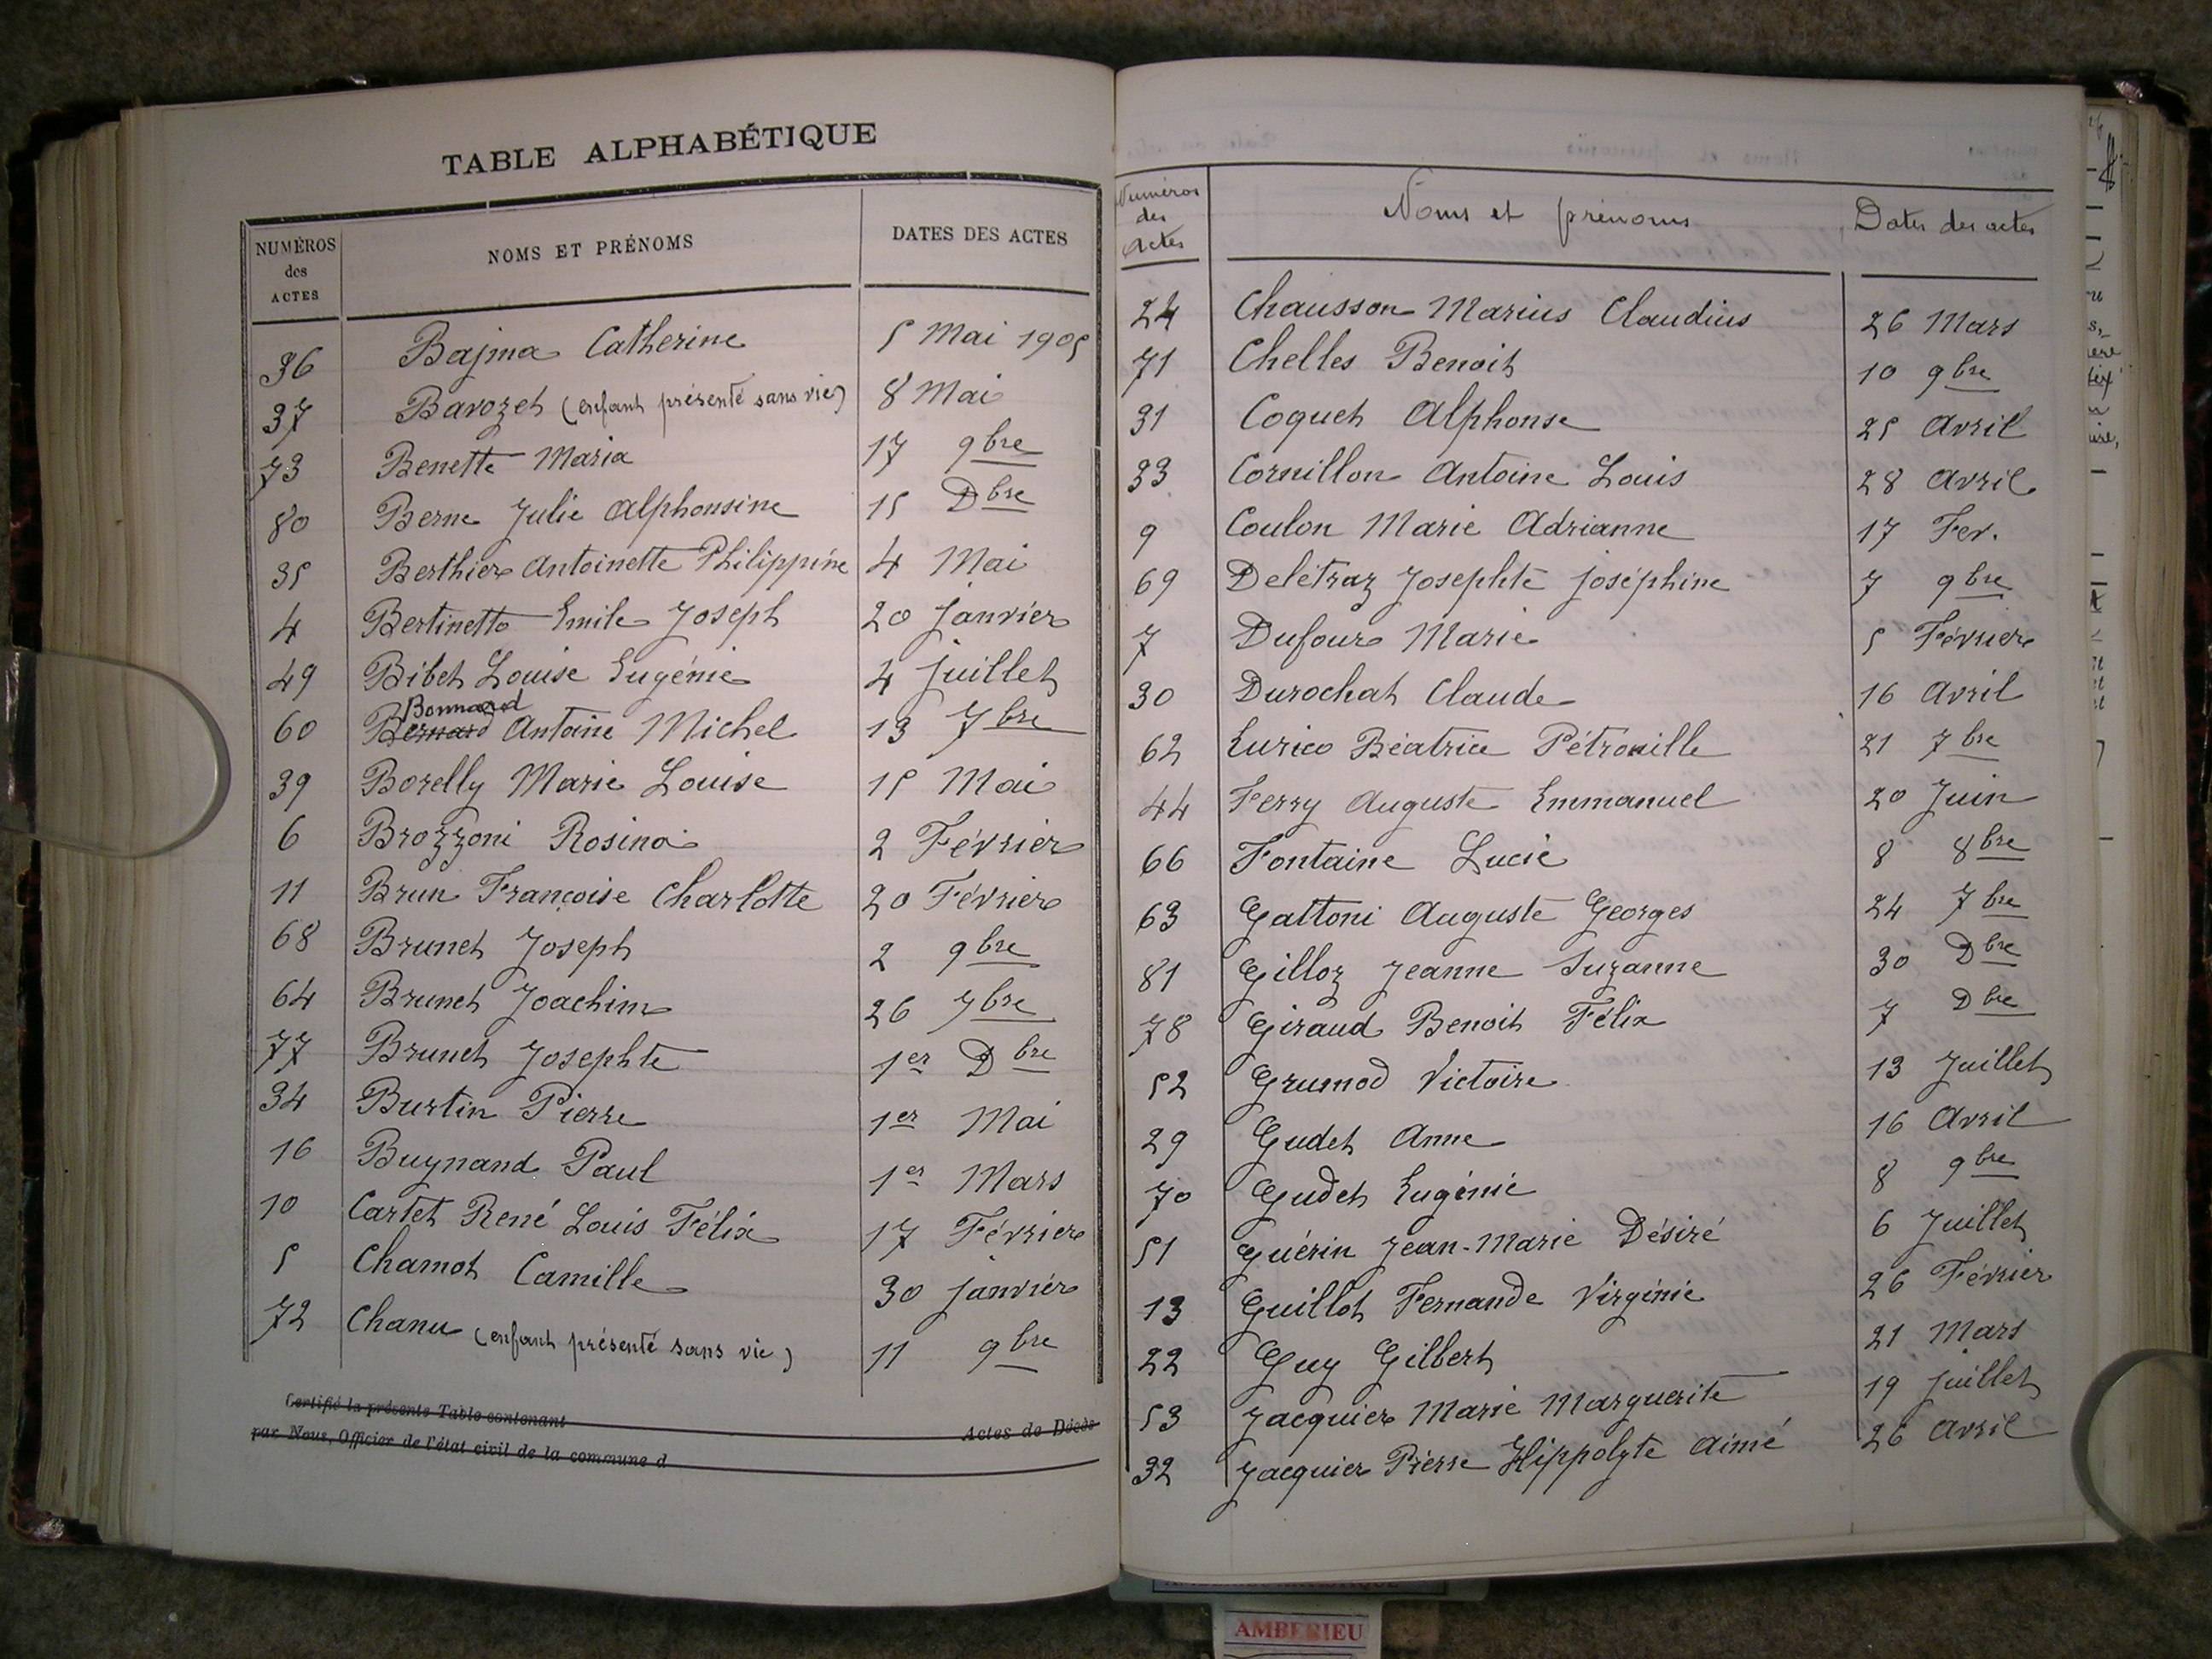 TABLE ALPHABÉTIQUE
NUMÉROS des ACTES NOMS ET PRÉNOMS DATES DES ACTES
36 Bajma Catherine 5 Mai 1905
37 Bavozet (enfant présenté sans vie) 8 Mai
73 Benette Maria 17 9bre
80 Berne Julie Alphonsine 15 Dbre
35 Berthier Antoinette Philippine 4 Mai
4 Bertinetto Emile Joseph 20 Janvier
49 Bibet Louise Eugénie 4 Juillet
Bonnard
60 Bernard Antoine Michel 13 7bre
39 Borelly Marie Louise 15 Mai
6 Brozzoni Rosina 2 Février
11 Brun Françoise Charlotte 20 Février
68 Brunet Joseph 2 9bre
64 Brunet Joachim 26 7bre
77 Brunet Josephte 1er Dbre
34 Burtin Pierre 1er Mai
16 Buynand Paul 1er Mars
10 Cartet René Louis Félix 17 Février
5 Chamot Camille 30 Janvier
72 Chanu (enfant présenté sans vie) 11 9bre
Certifié la présente Table contenant Actes de Décès
par Nous, Officier de l'état civil de la commune d
Numéros des Actes Noms et prénoms Dates des actes
24 Chausson Marius Claudius 26 Mars
71 Chelles Benoit 10 9bre
31 Coquet Alphonse 25 Avril
33 Cornillon Antoine Louis 28 Avril
9 Coulon Marie Adrianne 17 Fev.
69 Delétraz Josephte Joséphine 7 9bre
7 Dufour Marie 5 Février
30 Durochat Claude 16 Avril
62 Eurico Béatrice Pétronille 21 7bre
44 Ferry Auguste Emmanuel 20 Juin
66 Fontaine Lucie 8 8bre
63 Gattoni Auguste Georges 24 7bre
81 Gilloz Jeanne Suzanne 30 Dbre
78 Giraud Benoit Félix 7 Dbre
52 Grumod Victoire 13 Juillet
29 Gudet Anne 16 Avril
70 Gudet Eugénie 8 9bre
51 Guérin Jean-Marie Désiré 6 Juillet
13 Guillot Fernande Virginie 26 Février
22 Guy Gilbert 21 Mars
53 Jacquier Marie Marguerite 19 Juillet
32 Jacquier Pierre Hippolyte Aimé 26 Avril
AMBERIEU